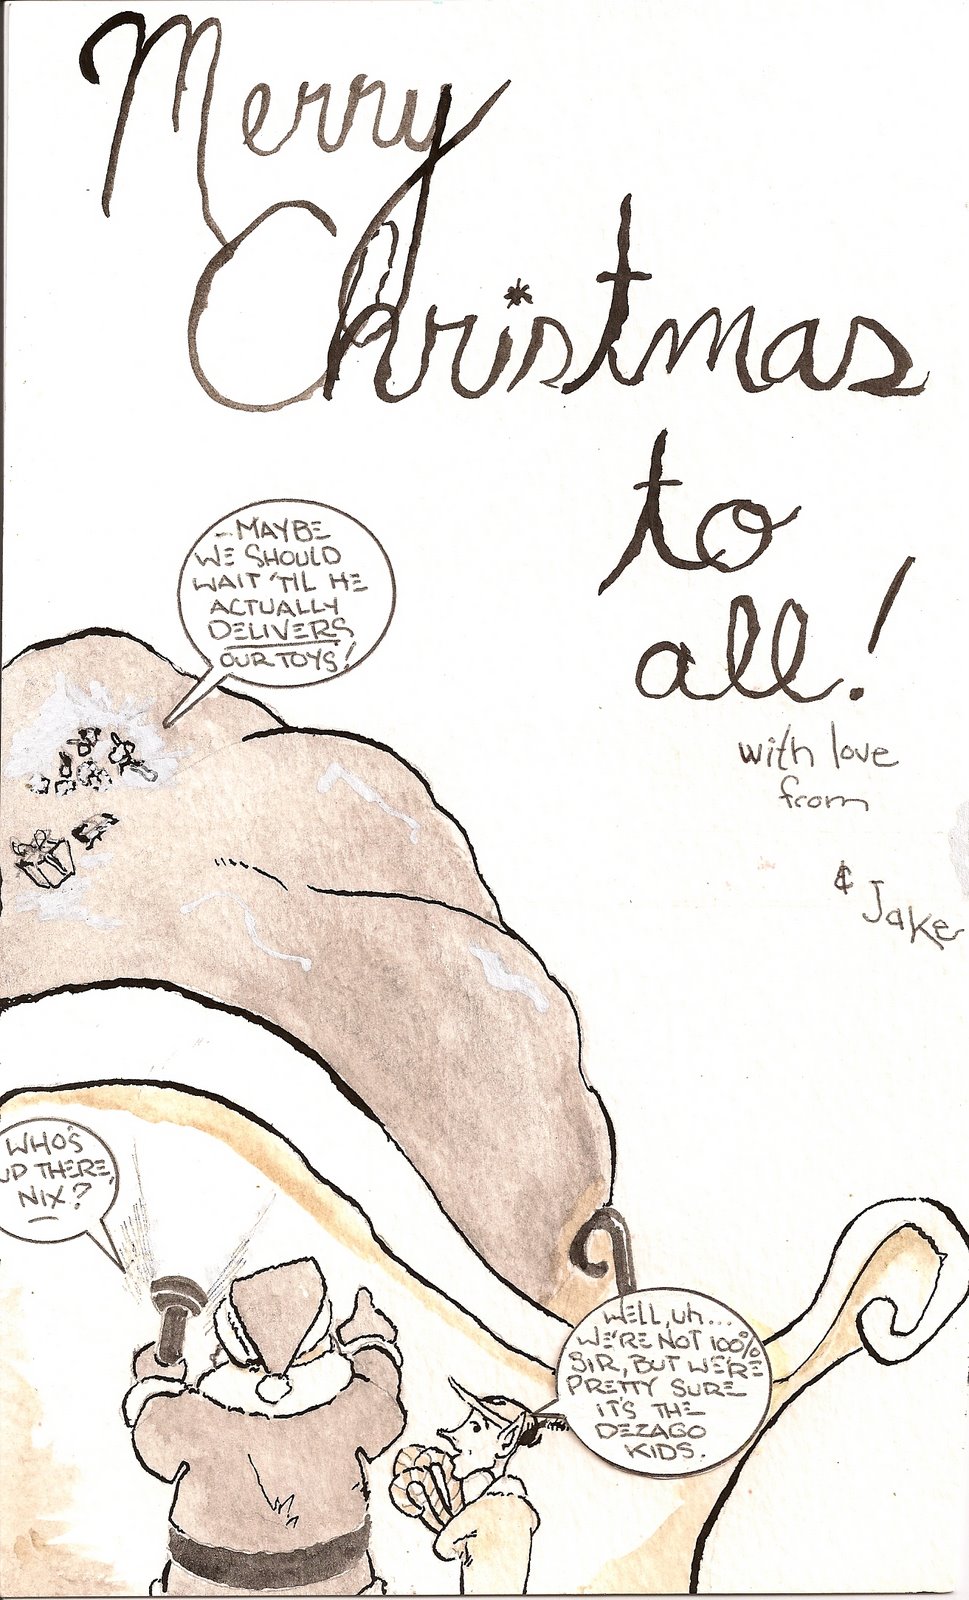 Merry
Christmas
to
all!
with love
from
& Jake
...MAYBE
WE SHOULD
WAIT 'TIL HE
ACTUALLY
DELIVERS
OUR TOYS!
WHO'S
UP THERE,
NIX?
WELL, uh...
WE'RE NOT 100%
SIR, BUT WE'RE
PRETTY SURE
IT'S THE
DEZAGO
KIDS.